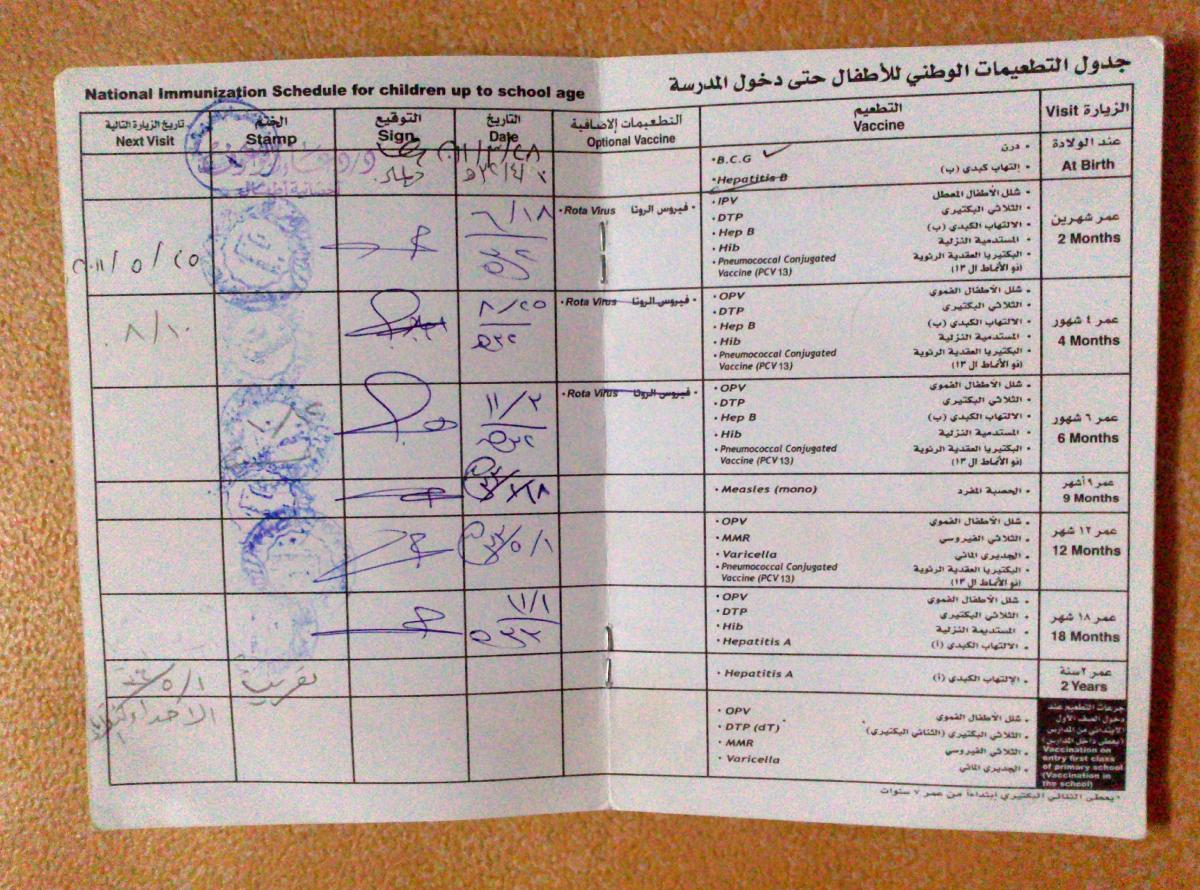 National Immunization Schedule for children up to school age
جدول التطعيمات الوطني للأطفال حتى دخول المدرسة
الزيارة Visit
التطعيم
Vaccine
التطعيمات الإضافية
Optional Vaccine
التاريخ
Date
التوقيع
Sign
الختم
Stamp
تاريخ الزيارة التالية
Next Visit
عند الولادة
At Birth
• B.C.G • درن
• Hepatitis B • إلتهاب كبدي (ب)
٢٠١١/٣/٢٨
عمر شهرين
2 Months
• IPV • شلل الأطفال المعطل
• DTP • الثلاثي البكتيري
• Hep B • الالتهاب الكبدي (ب)
• Hib • المستدمية النزلية
• Pneumococcal Conjugated • البكتيريا العقدية الرئوية
Vaccine (PCV 13) (ذو الأنماط ال ١٣)
• Rota Virus فيروس الروتا •
٦/١٨
٢٠١١/٥/٢٥
عمر ٤ شهور
4 Months
• OPV • شلل الأطفال الفموي
• DTP • الثلاثي البكتيري
• Hep B • الالتهاب الكبدي (ب)
• Hib • المستدمية النزلية
• Pneumococcal Conjugated • البكتيريا العقدية الرئوية
Vaccine (PCV 13) (ذو الأنماط ال ١٣)
• Rota Virus فيروس الروتا •
٨/٢٥
٨/١٠
عمر ٦ شهور
6 Months
• OPV • شلل الأطفال الفموي
• DTP • الثلاثي البكتيري
• Hep B • الالتهاب الكبدي (ب)
• Hib • المستدمية النزلية
• Pneumococcal Conjugated • البكتيريا العقدية الرئوية
Vaccine (PCV 13) (ذو الأنماط ال ١٣)
• Rota Virus فيروس الروتا •
١١/٢
عمر ٩ أشهر
9 Months
• Measles (mono) • الحصبة المفرد
عمر ١٢ شهر
12 Months
• OPV • شلل الأطفال الفموي
• MMR • الثلاثي الفيروسي
• Varicella • الجديري المائي
• Pneumococcal Conjugated • البكتيريا العقدية الرئوية
Vaccine (PCV 13) (ذو الأنماط ال ١٣)
عمر ١٨ شهر
18 Months
• OPV • شلل الأطفال الفموي
• DTP • الثلاثي البكتيري
• Hib • المستديمة النزلية
• Hepatitis A • الالتهاب الكبدي (أ)
١١/١
عمر ٢ سنة
2 Years
• Hepatitis A • الإلتهاب الكبدي (أ)
جرعات التطعيم عند
دخول الصف الأول
الابتدائي من المدارس
(يعطى داخل المدارس)
Vaccination on
entry first class
of primary school
(Vaccination in
the school)
• OPV • شلل الأطفال الفموي
• DTP (dT) • الثلاثي البكتيري (الثنائي البكتيري)
• MMR • الثلاثي الفيروسي
• Varicella • الجديري المائي
* يعطى الثنائي البكتيري إبتداءاً من عمر ٧ سنوات